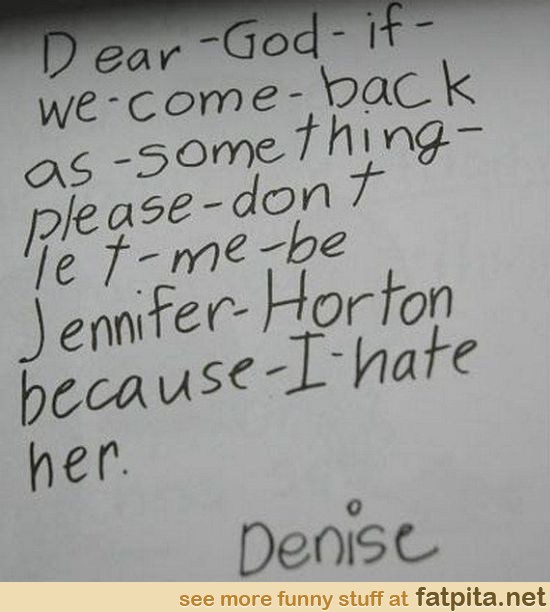 Dear-God-if-
we-come-back
as-something-
please-don't
let-me-be
Jennifer-Horton
because-I-hate
her.
Denise
see more funny stuff at fatpita.net